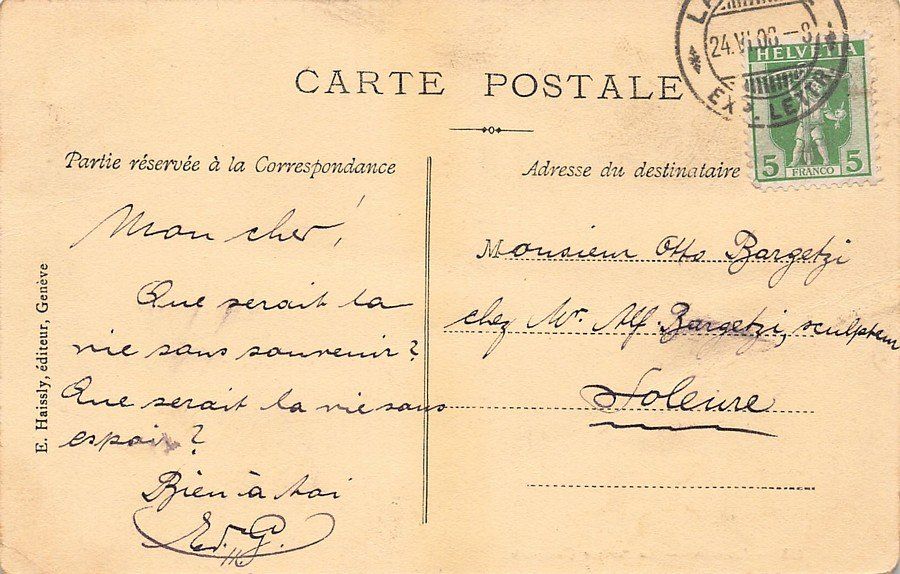 CARTE POSTALE
24.VI.08-8
EXP. LETTR.
HELVETIA
5 FRANCO 5
Partie réservée à la Correspondance
Mon cher!
Que serait la
vie sans souvenir?
Que serait la vie sans
espoir?
Bien à toi
Ed. G.
Adresse du destinataire
Monsieur Otto Bargetzi
chez Mr. Alf. Bargetzi, sculpteur
Soleure
E. Haissly, éditeur, Genève